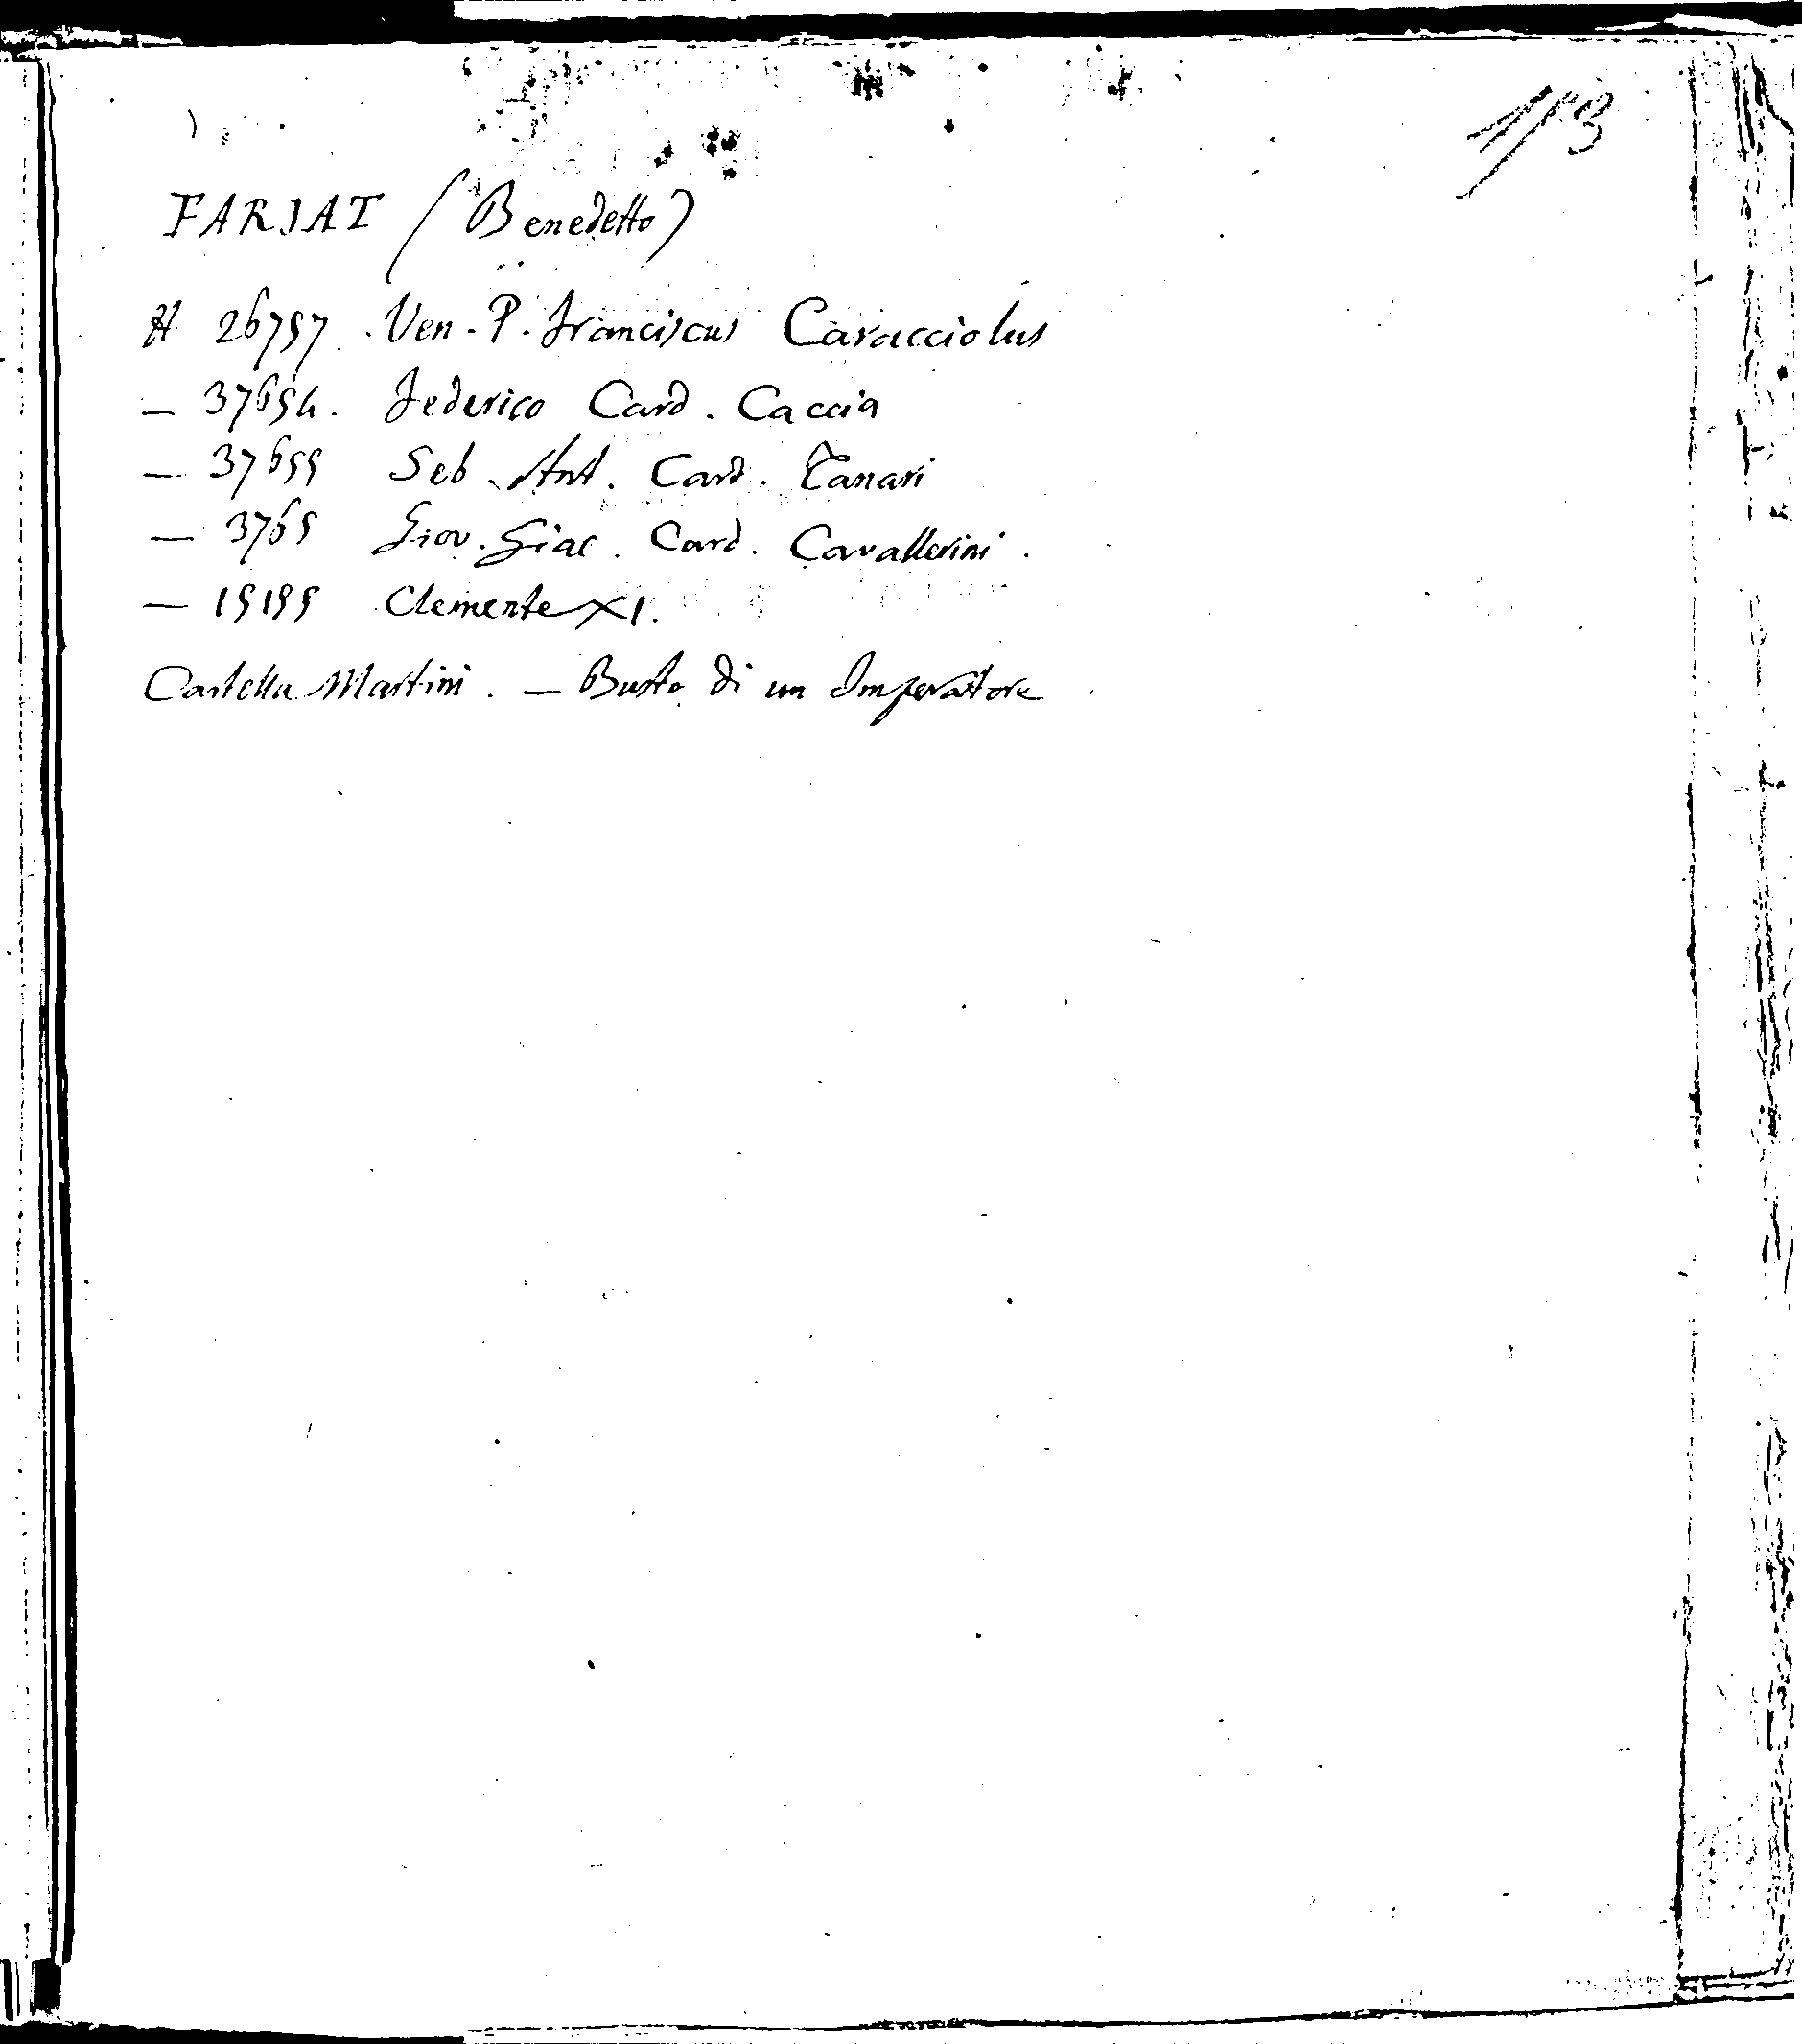 FARJAT (Benedetto)
A 26757. Ven. P. Franciscus Caracciolus
— 37654. Federico Card. Caccia
— 37655 Seb. Ant. Card. Tanari
— 3765 Giov. Giac. Card. Cavallerini.
— 15195 Clemente XI.
Cartella Martini. — Busto di un Imperatore